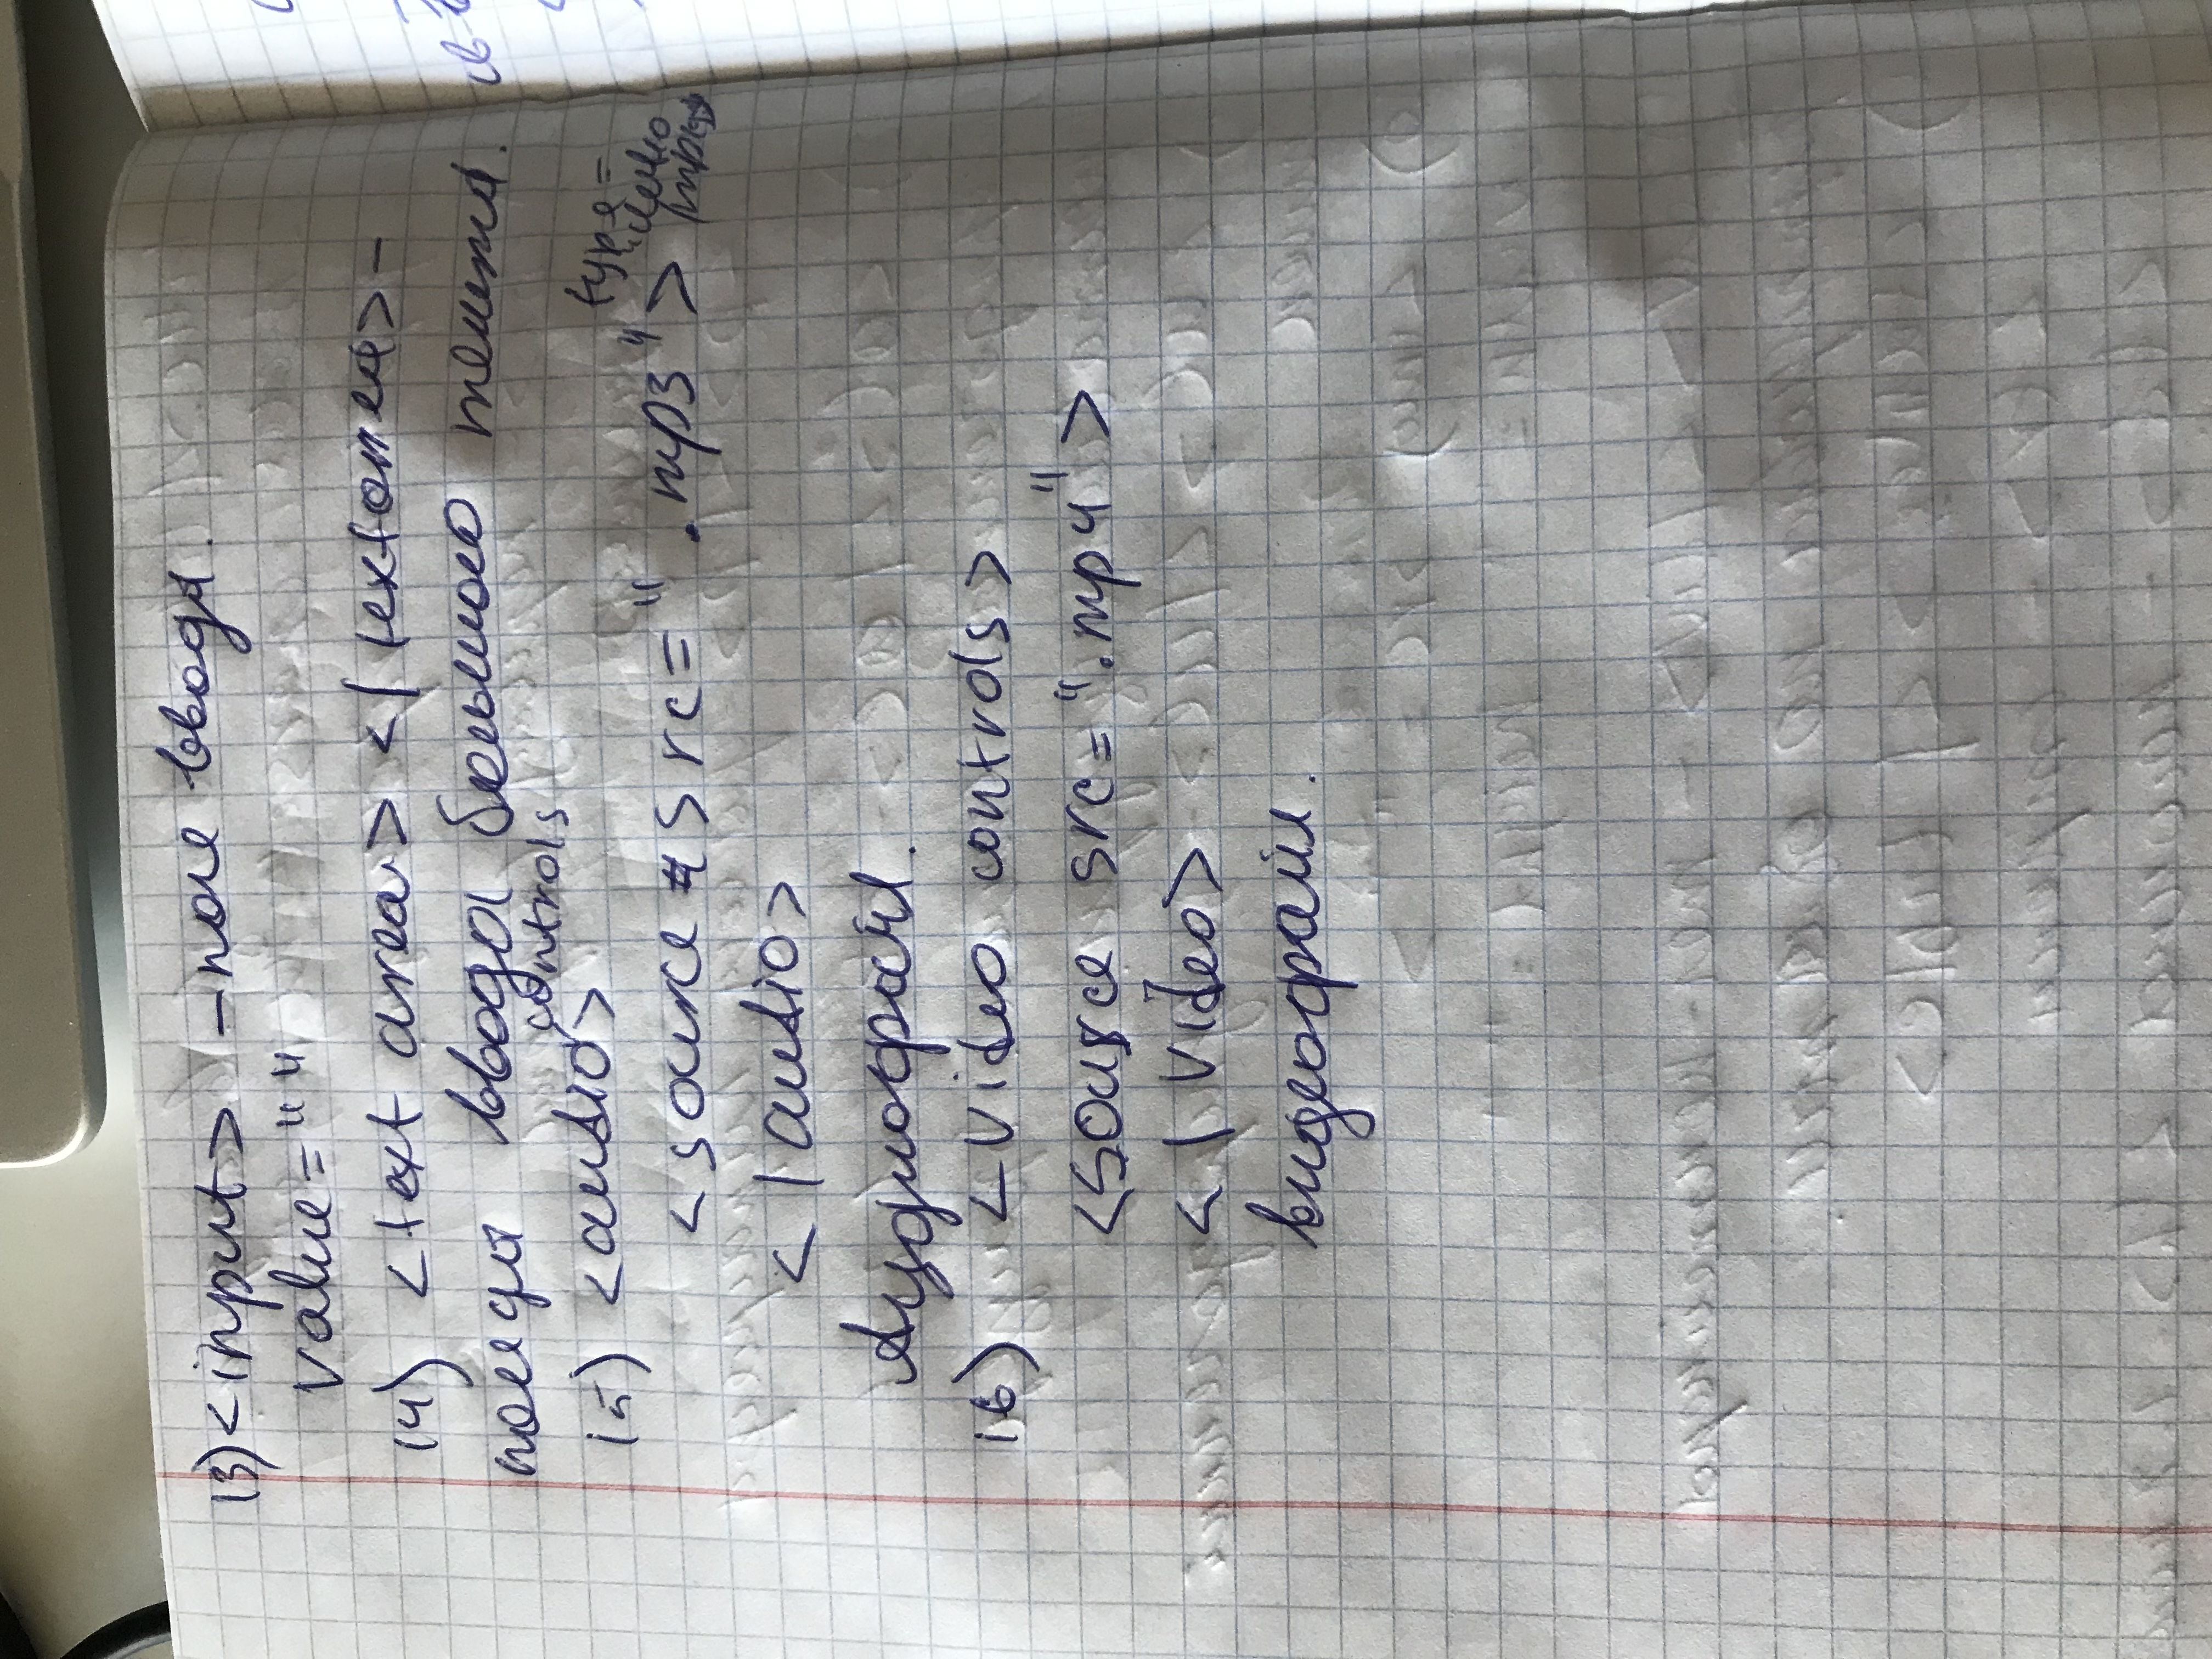 13) <input> – поле ввода.
value=" "
14) <text area> </textarea> –
поле для ввода большого текста.
controls
15) <audio>
type=
<source src=" .mp3"> "audio
</audio>
Аудиофайл.
16) <Video controls>
<source src=".mp4">
</Video>
видеофайл.